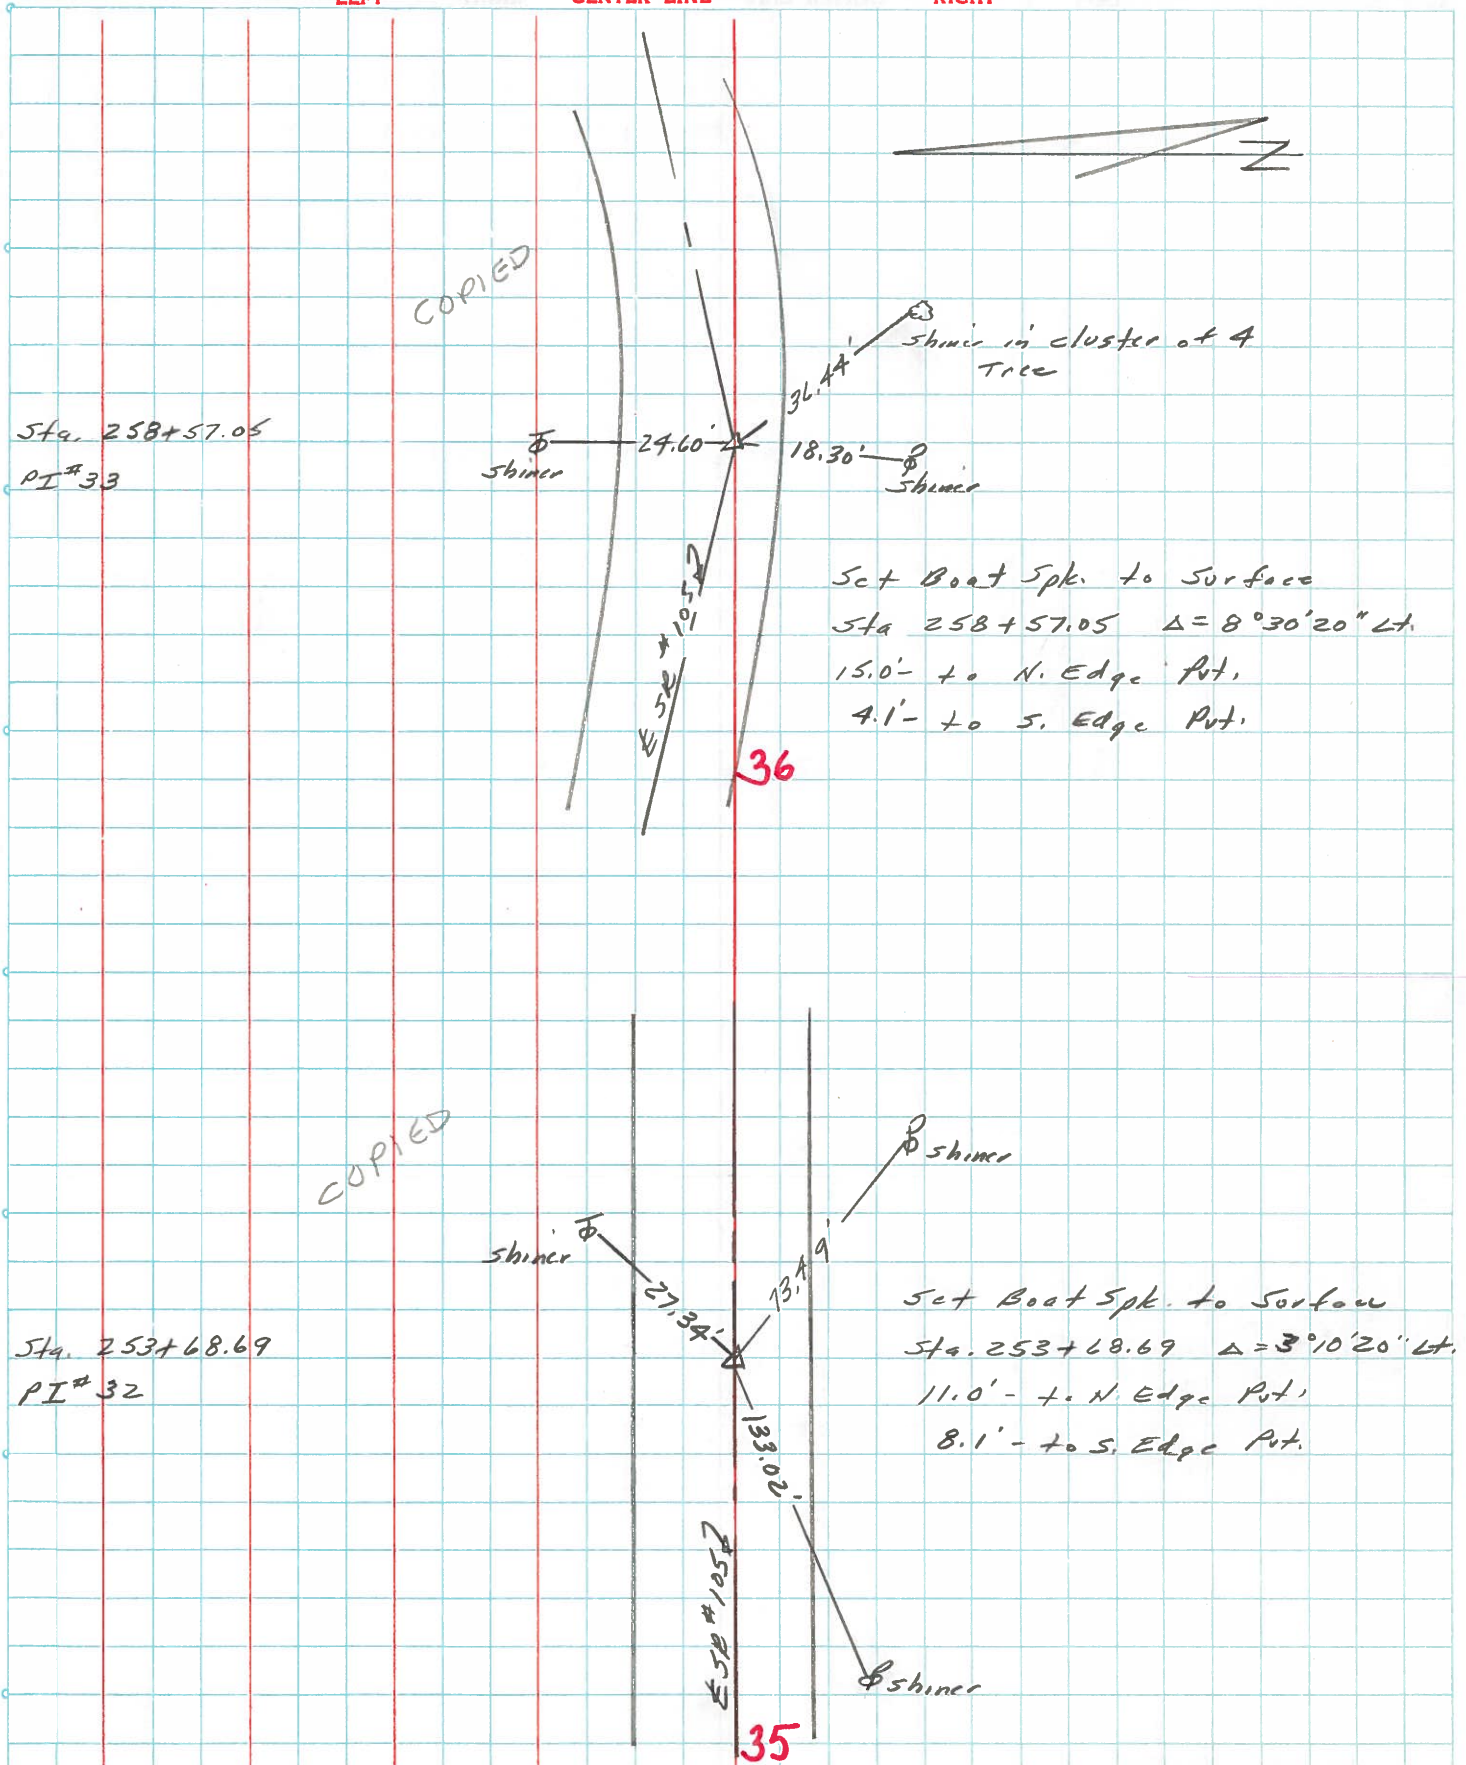 LEFT CENTER LINE RIGHT
N
COPIED
shiner in cluster of 4
Tree
36.44'
Sta. 258+57.05
PI #33
24.60'
shiner
18.30'
shiner
Set Boat Spk. to Surface
Sta 258+57.05 Δ = 8°30'20" Lt.
15.0'- to N. Edge Pvt.
4.1'- to S. Edge Pvt.
℄ SR #1052
36
COPIED
shiner
shiner
27.34'
13.49'
Sta. 253+68.69
PI #32
Set Boat Spk. to Surface
Sta. 253+68.69 Δ = 3°10'20" Lt.
11.0'- to N. Edge Pvt.
8.1'- to S. Edge Pvt.
133.02'
℄ SR #1052
shiner
35